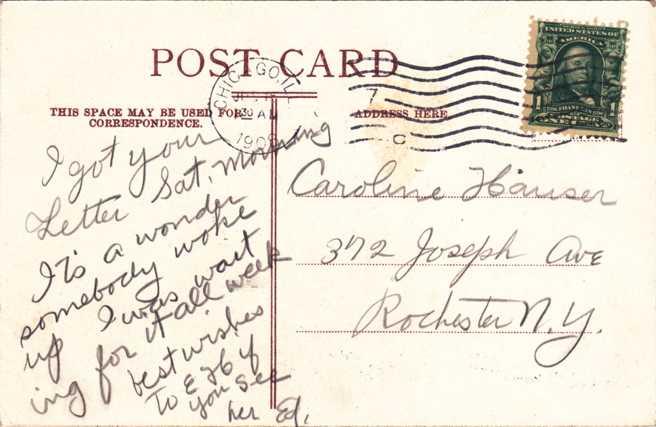 POST CARD
THIS SPACE MAY BE USED FOR
CORRESPONDENCE.
ADDRESS HERE
CHICAGO, ILL
30 AM
1908
7
C
UNITED STATES OF
AMERICA
I got your
Letter Sat, Morning
It's a wonder
somebody woke
up I was wait
ing for it all week
best wishes
To E H if
you see
her Ed.
Caroline Hauser
372 Joseph Ave
Rochester N.Y.